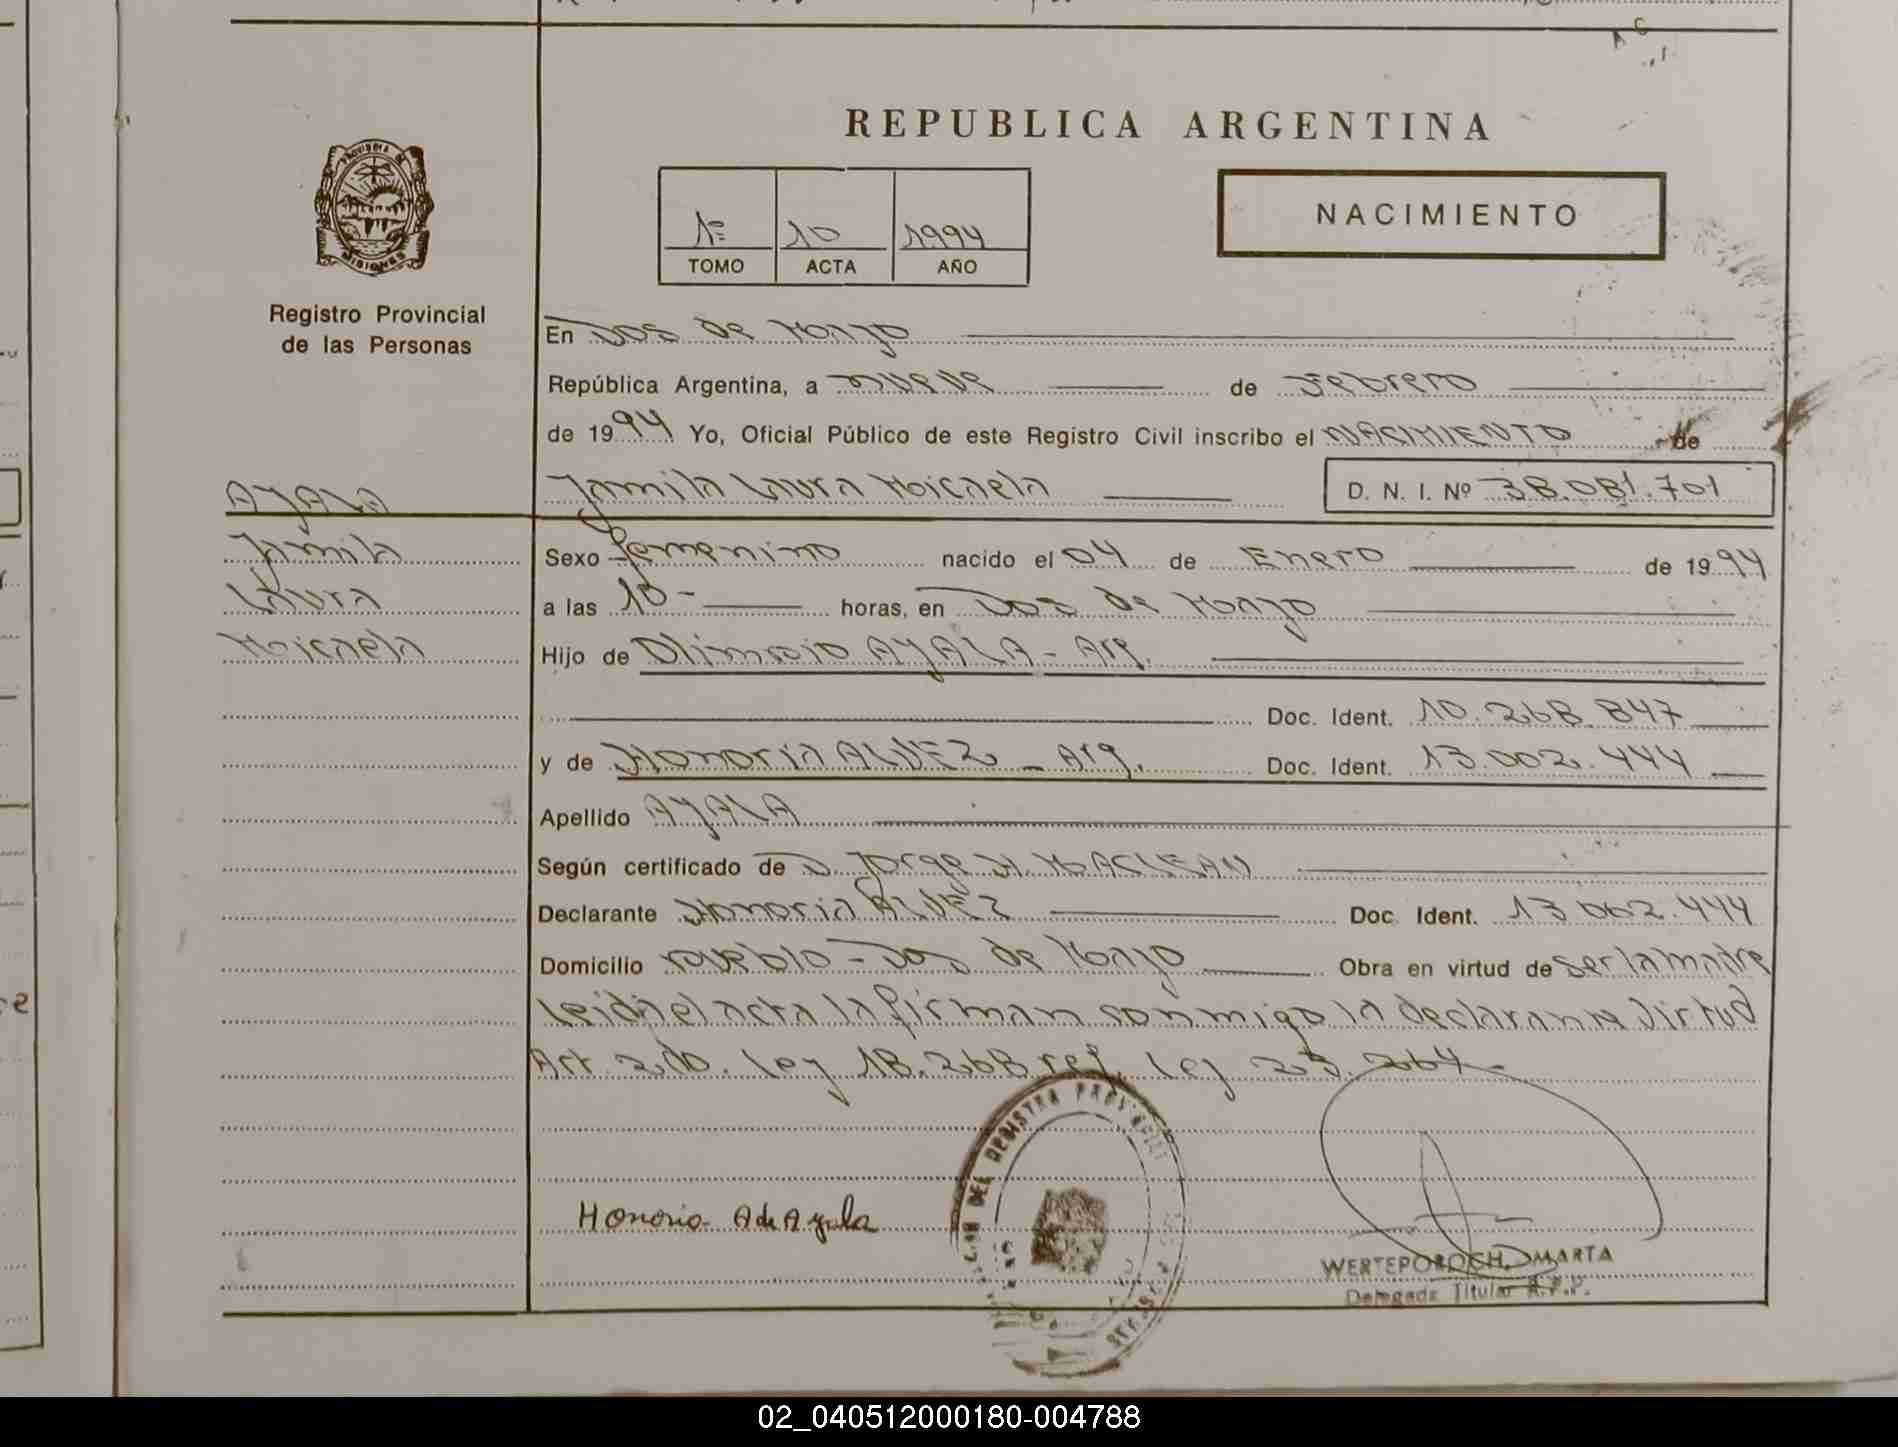 REPUBLICA ARGENTINA
PROVINCIA DE
MISIONES
1º 10 1994
TOMO ACTA AÑO
NACIMIENTO
Registro Provincial
de las Personas
En Dos de Mayo
República Argentina, a nueve de Febrero
de 1994 Yo, Oficial Público de este Registro Civil inscribo el NACIMIENTO de
AYALA
Jamila Laura Micaela D. N. I. Nº 38.081.701
Jamila
Sexo femenino nacido el 04 de Enero de 1994
Laura
a las 10- horas, en Dos de Mayo
Micaela
Hijo de Olimpio AYALA - Arg.
Doc. Ident. 10.268.847
y de Honoria ALVEZ - Arg. Doc. Ident. 13.002.444
Apellido AYALA
Según certificado de D. Jorge H. MACLEAN
Declarante Honoria ALVEZ Doc. Ident. 13.002.444
Domicilio Pueblo - Dos de Mayo Obra en virtud de ser la madre
Leida el acta la firman conmigo la declarante virtud
Art. Ley 18.268 ref. Ley 23.264-
DEL REGISTRO PROVINCIAL
Honoria A de Ayala
WERTEPOROCH, MARTA
Delegada Titular R.P.P.
02_040512000180-004788